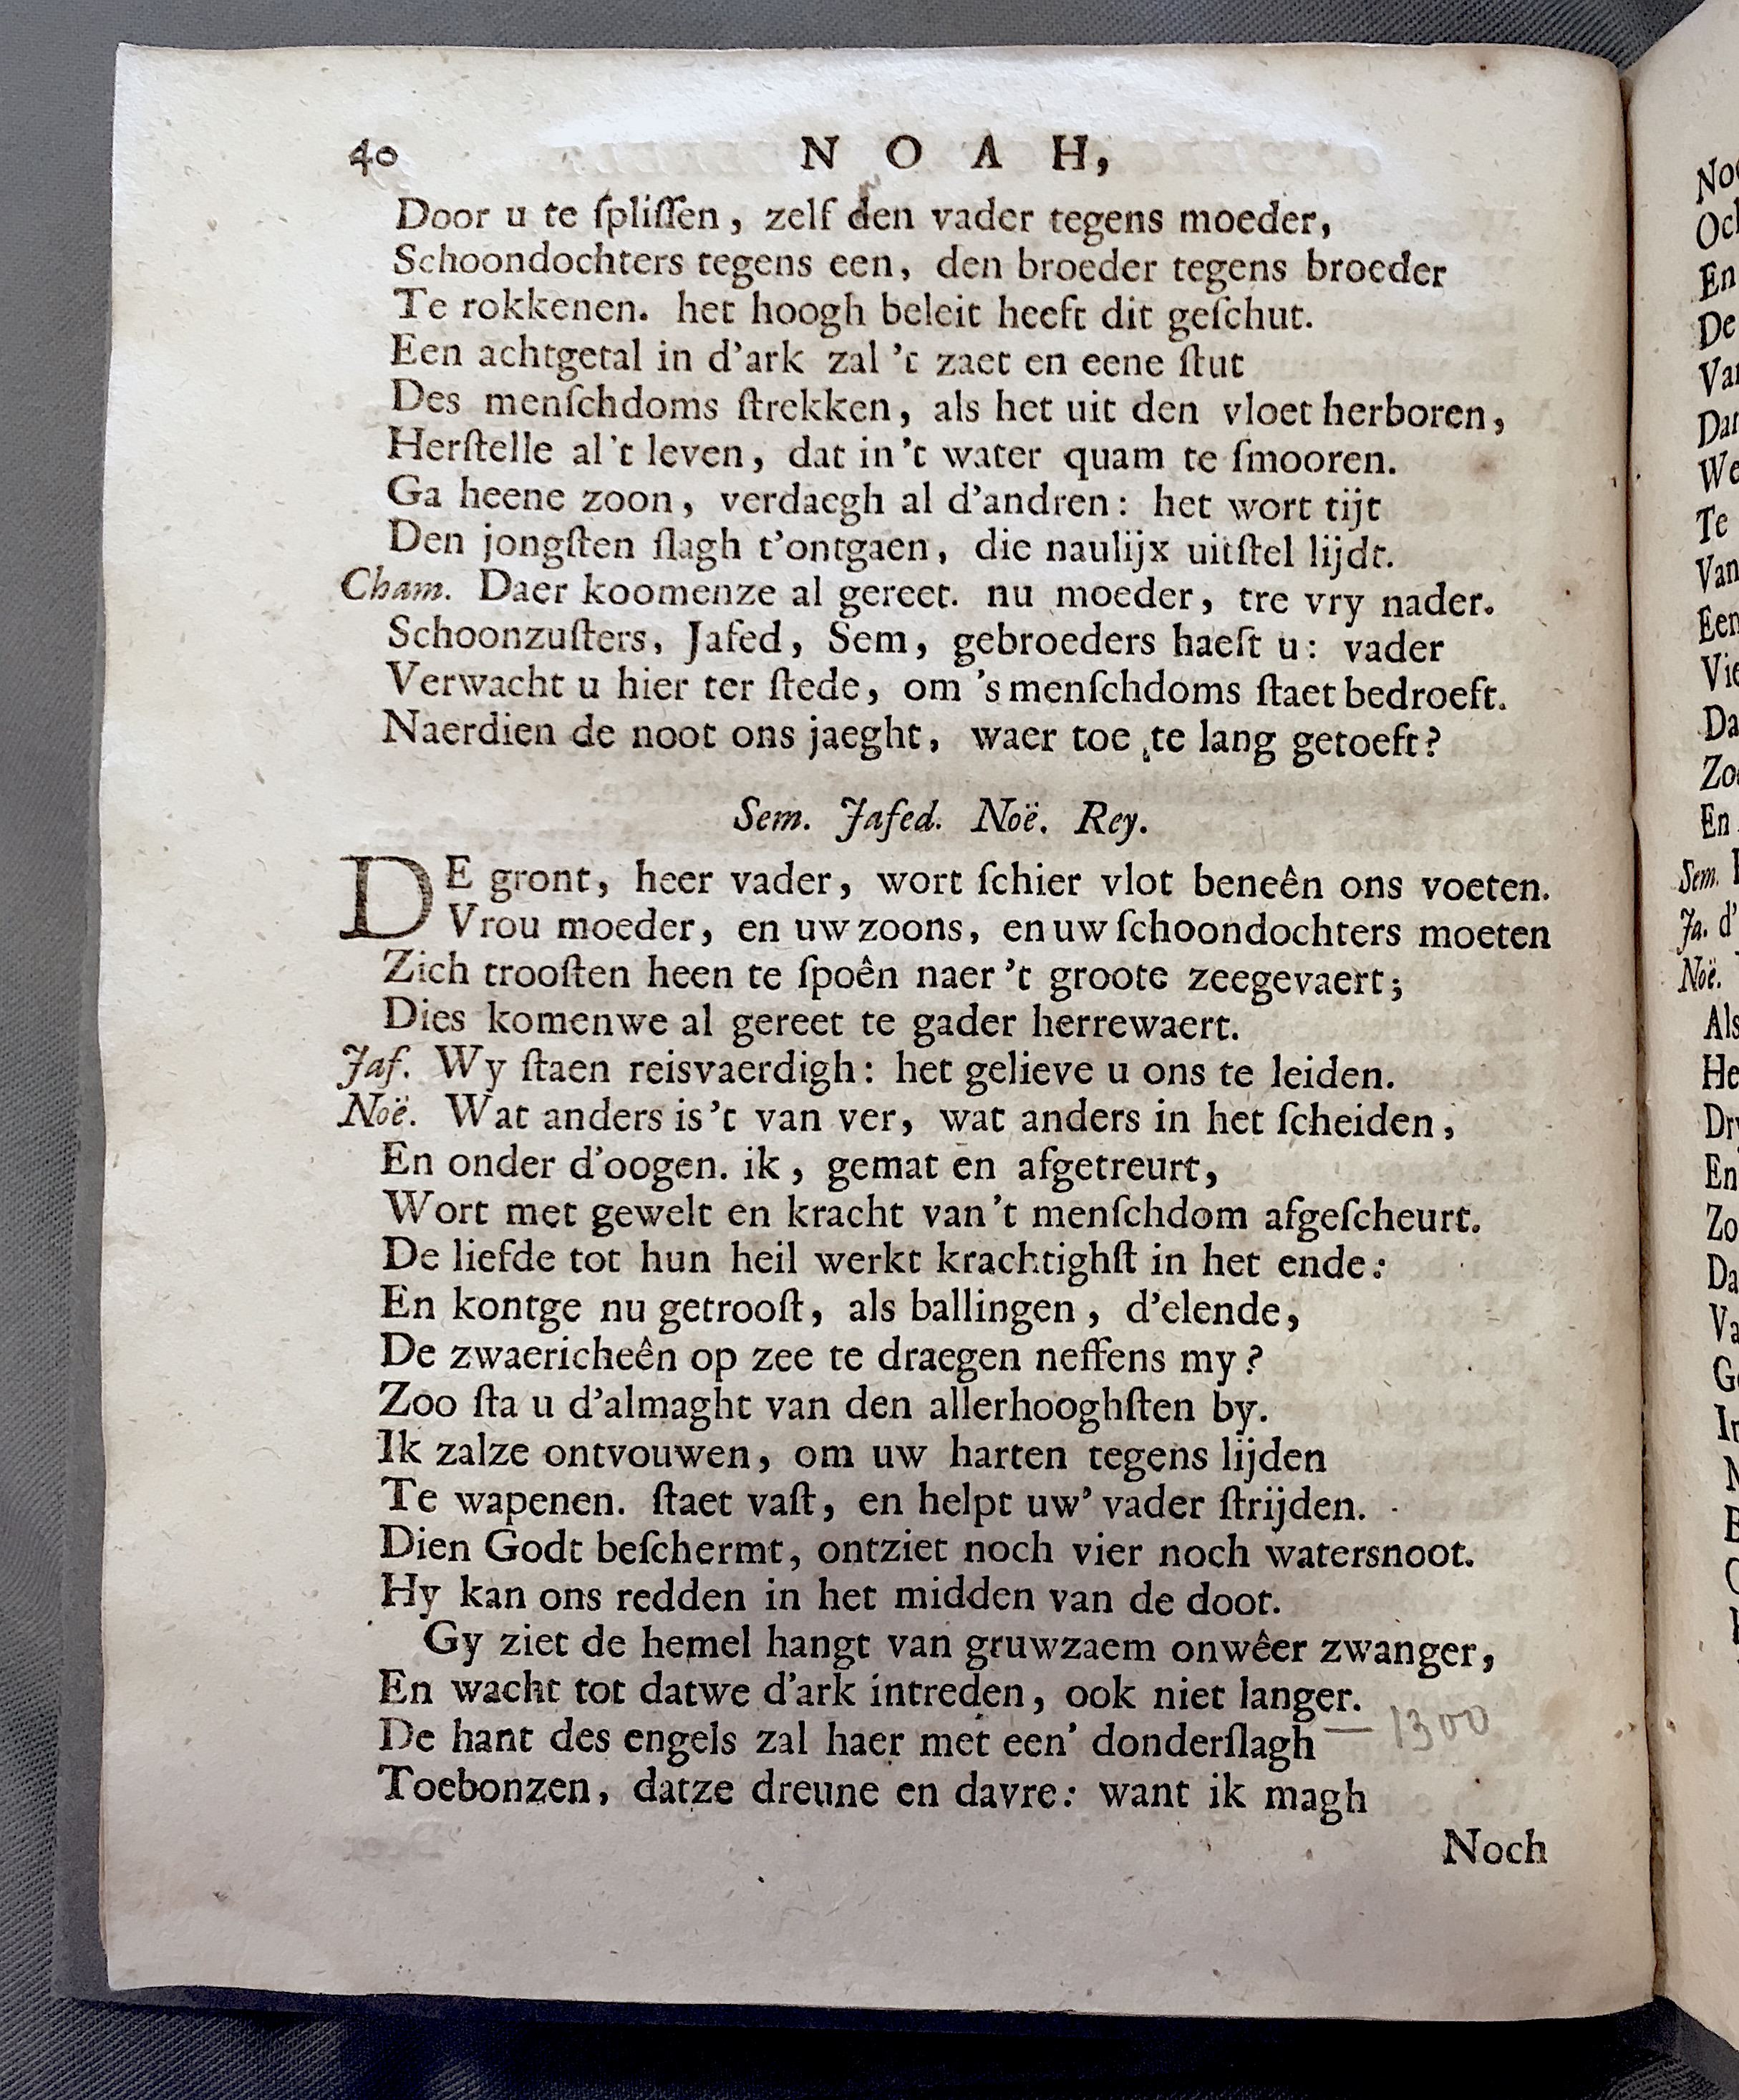 40 NOAH,
Door u te ſpliſſen, zelf den vader tegens moeder,
Schoondochters tegens een, den broeder tegens broeder
Te rokkenen. het hoogh beleit heeft dit geſchut.
Een achtgetal in d'ark zal 't zaet en eene ſtut
Des menſchdoms ſtrekken, als het uit den vloet herboren,
Herſtelle al 't leven, dat in 't water quam te ſmooren.
Ga heene zoon, verdaegh al d'andren: het wort tijt
Den jongſten ſlagh t'ontgaen, die naulijx uitſtel lijdt.
Cham. Daer koomenze al gereet. nu moeder, tre vry nader.
Schoonzuſters, Jafed, Sem, gebroeders haeſt u: vader
Verwacht u hier ter ſtede, om 's menſchdoms ſtaet bedroeft.
Naerdien de noot ons jaeght, waer toe te lang getoeft?
Sem. Jafed. Noë. Rey.
DE gront, heer vader, wort ſchier vlot beneên ons voeten.
Vrou moeder, en uw zoons, en uw ſchoondochters moeten
Zich trooſten heen te ſpoên naer 't groote zeegevaert;
Dies komenwe al gereet te gader herrewaert.
Jaf. Wy ſtaen reisvaerdigh: het gelieve u ons te leiden.
Noë. Wat anders is 't van ver, wat anders in het ſcheiden,
En onder d'oogen. ik, gemat en afgetreurt,
Wort met gewelt en kracht van 't menſchdom afgeſcheurt.
De liefde tot hun heil werkt krachtighſt in het ende:
En kontge nu getrooſt, als ballingen, d'elende,
De zwaericheên op zee te draegen neffens my?
Zoo ſta u d'almaght van den allerhooghſten by.
Ik zalze ontvouwen, om uw harten tegens lijden
Te wapenen. ſtaet vaſt, en helpt uw' vader ſtrijden.
Dien Godt beſchermt, ontziet noch vier noch watersnoot.
Hy kan ons redden in het midden van de doot.
Gy ziet de hemel hangt van gruwzaem onwêer zwanger,
En wacht tot datwe d'ark intreden, ook niet langer.
De hant des engels zal haer met een' donderſlagh — 1300
Toebonzen, datze dreune en davre: want ik magh
Noch
Sem.
Ja. d'
Noë.